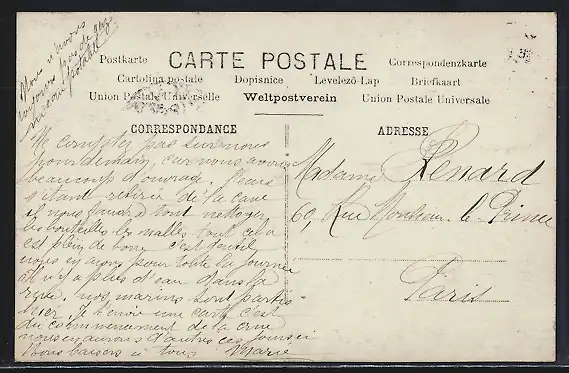 Nous n'avons
toujours pas de gaz
ni eau potable
Postkarte CARTE POSTALE Correspondenzkarte
Cartolina postale Dopisnice Levelező-Lap Briefkaart
Union Postale Universelle Weltpostverein Union Postale Universale
CORRESPONDANCE
Ne comptez pas sur nous
pour demain, car nous avons
beaucoup d'ouvrage. l'eau
s'étant retirée de la cave
il nous faut tout nettoyer
les bouteilles les malles tout cela
est plein de boue c'est
nous en avons pour toute la journée
il n'y a plus d'eau dans la
rue. nos marins sont partis
hier. Je t'envoie une carte c'est
du commencement de la crue
nous en aurons d'autres ces jours-ci
Bons baisers à tous Marie
ADRESSE
Madame Renard
60, Rue Monsieur le Prince
Paris